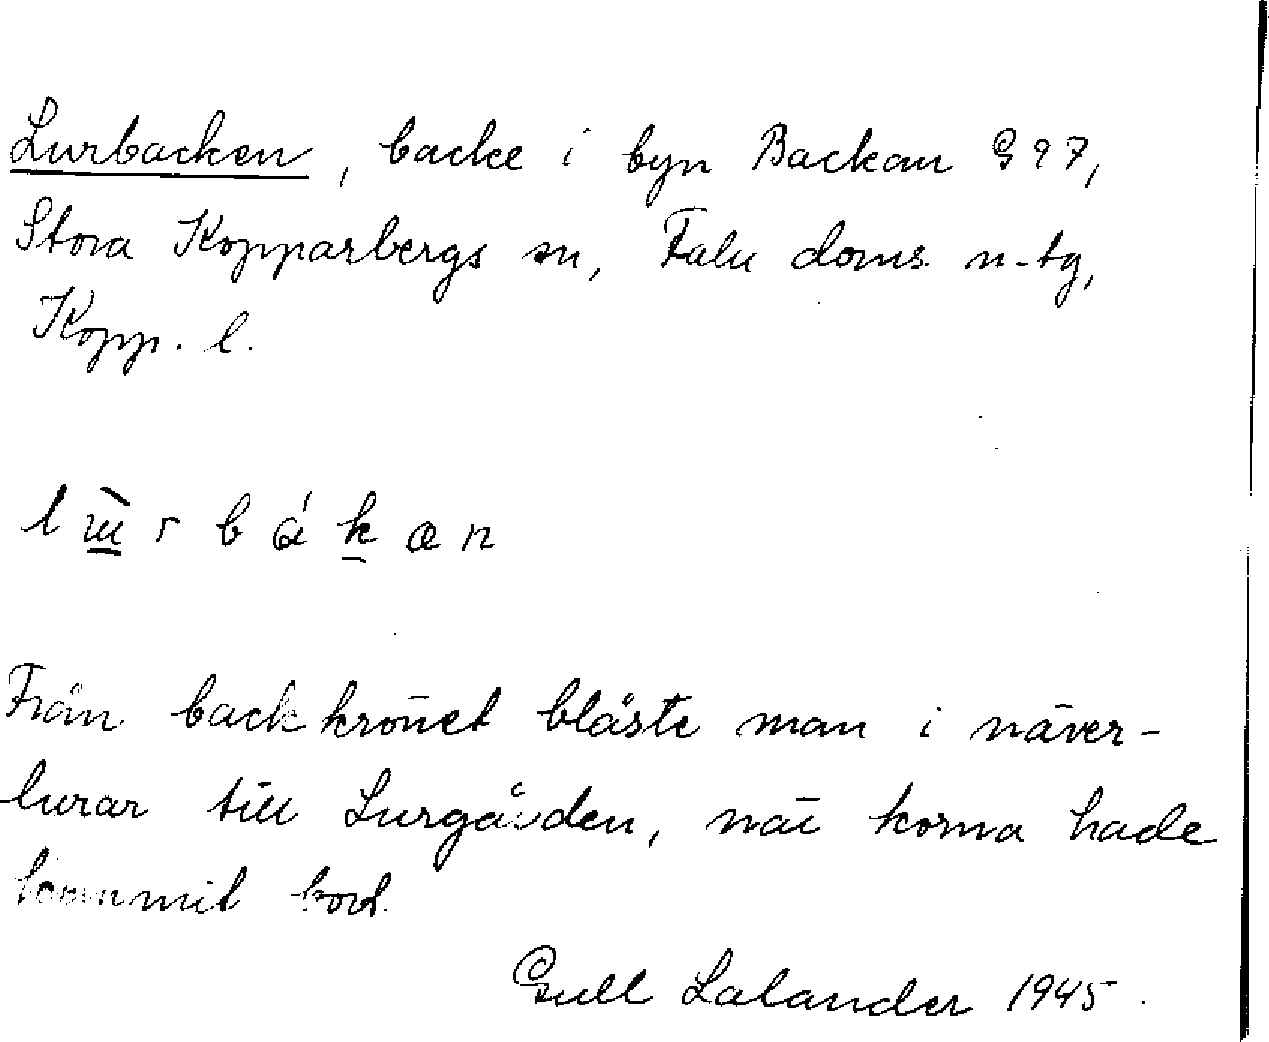 Lurbacken, backe i byn Backan G97,
Stora Kopparbergs sn, Falu doms. n-tg,
Kopp. l.
l ɯ̀ r b á k a n
Från backkrönet blåste man i näver-
lurar till Lurgården, när korna hade
kommit bort.
Gull Lalander 1945.